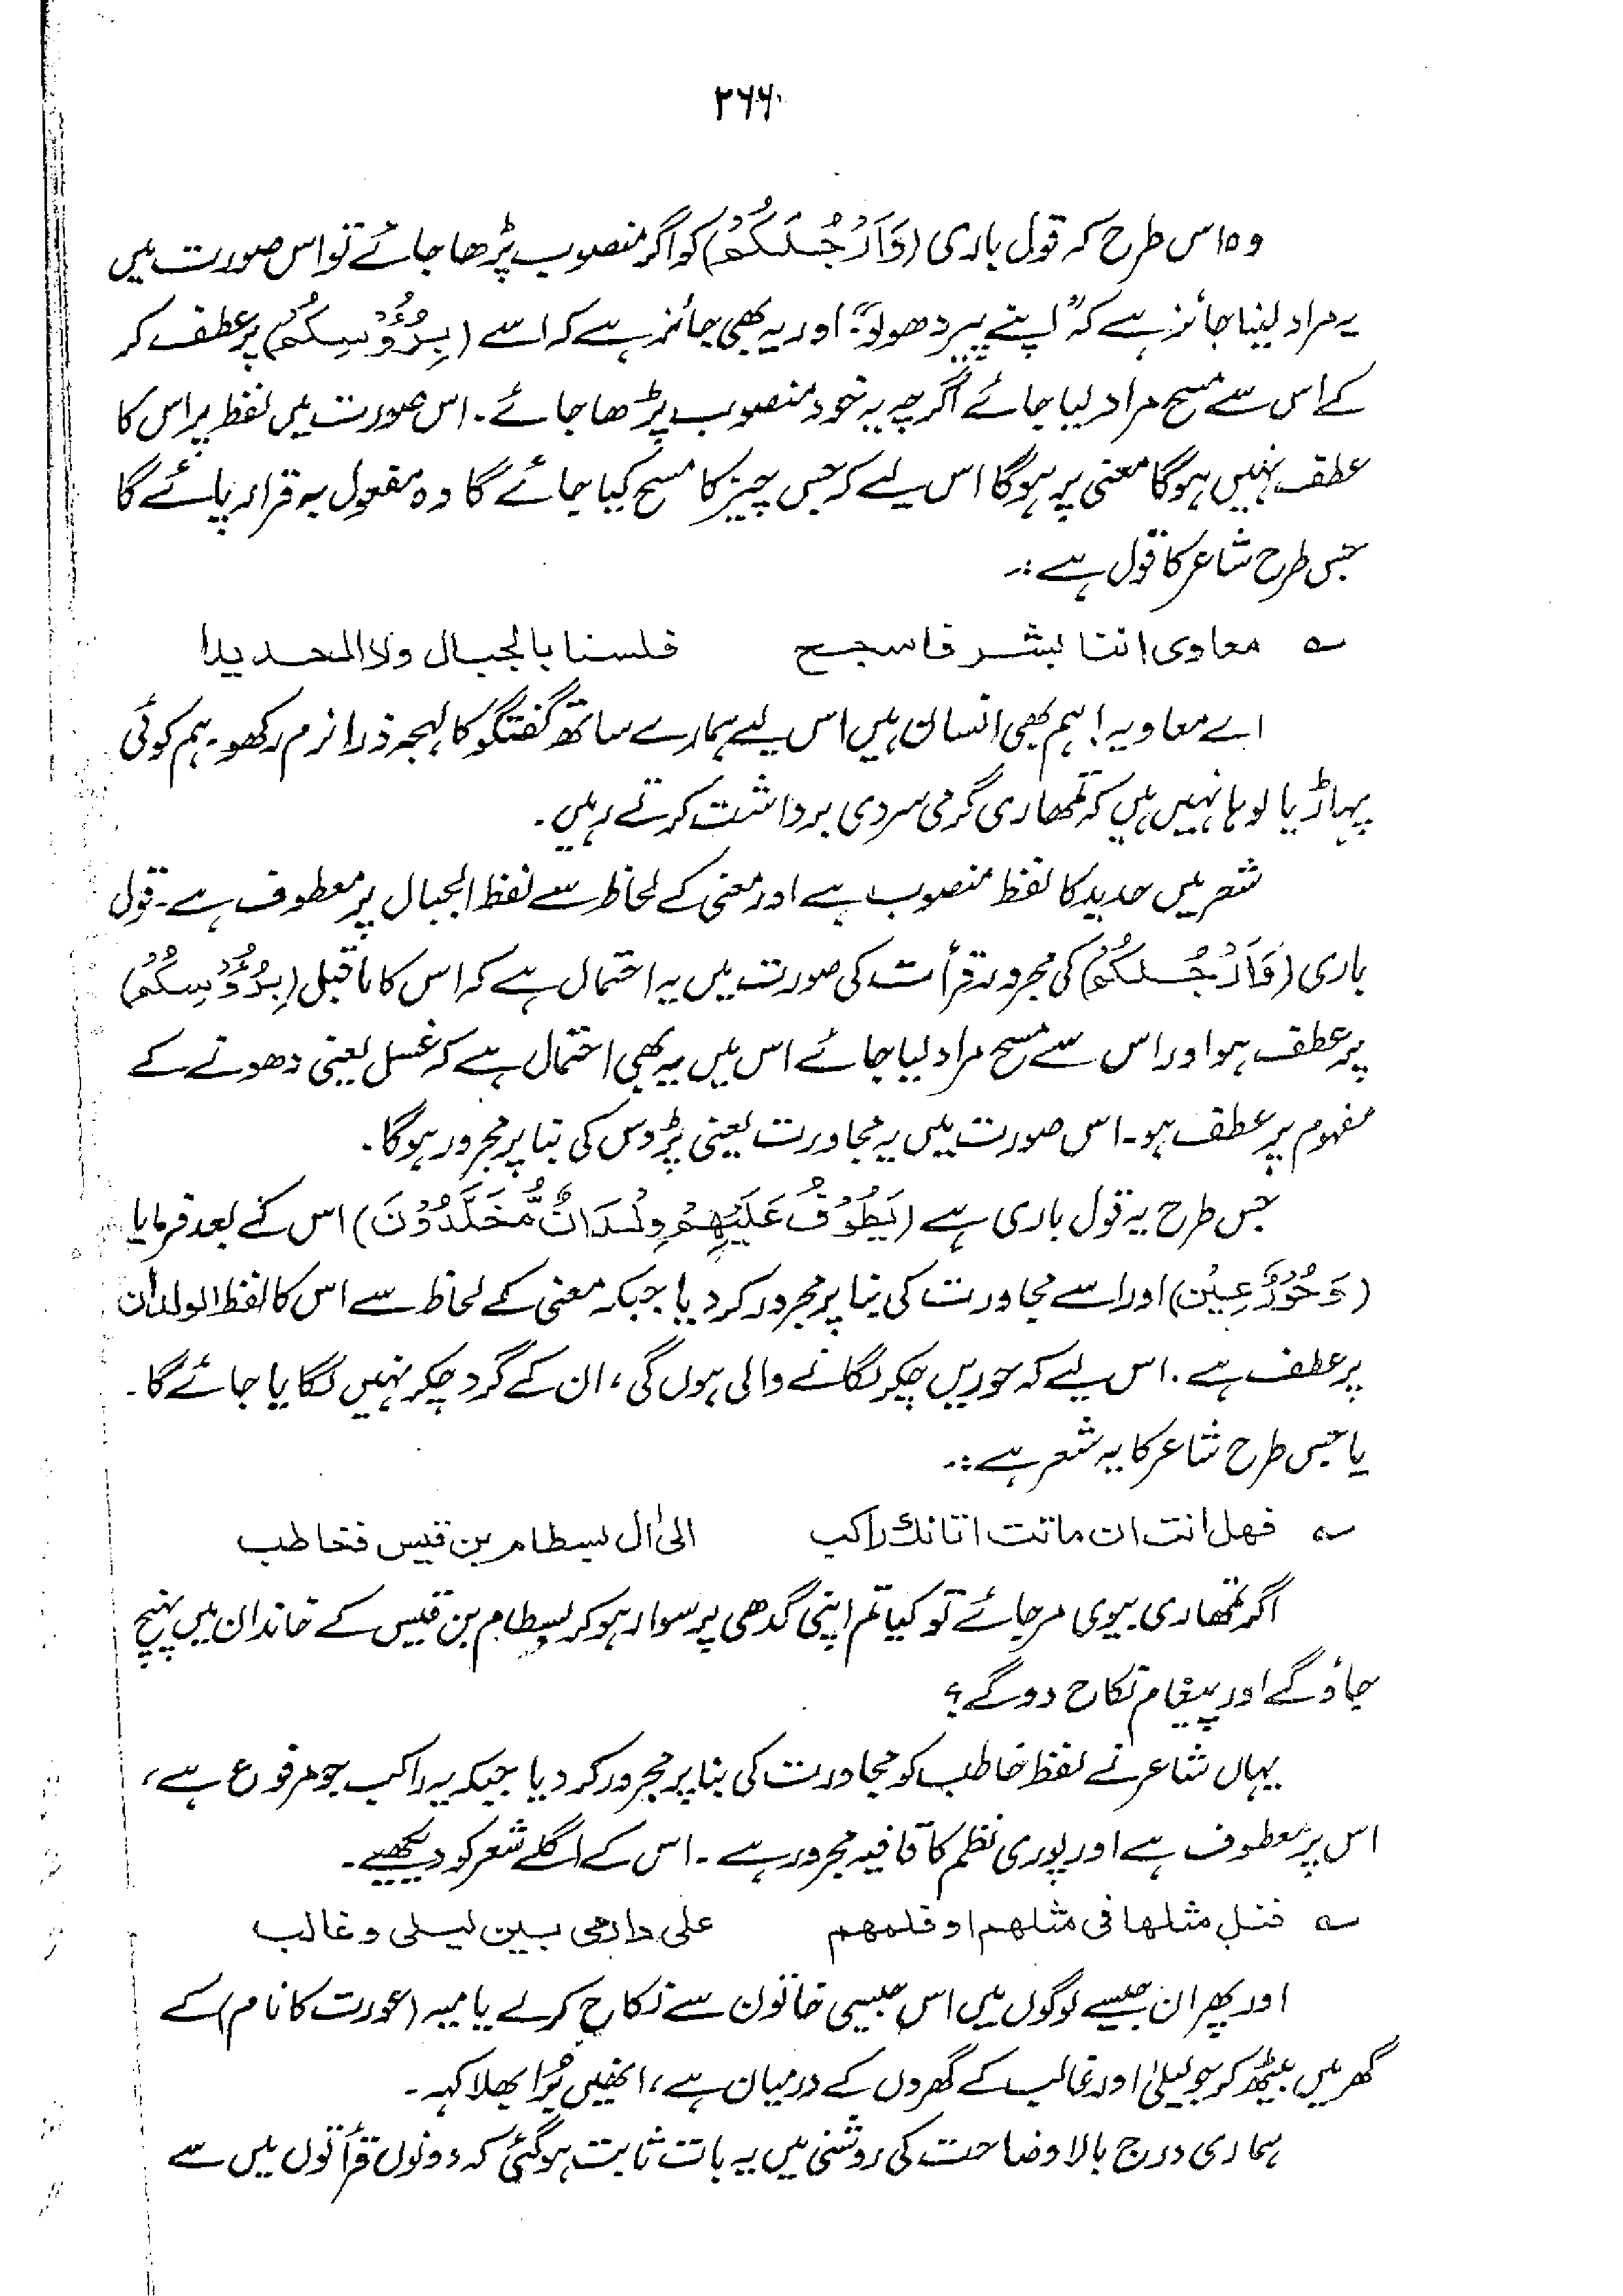 ۲۶۶
وہ اس طرح کہ قول باری (وَاَرْجُلَكُمْ) کو اگر منصوب پڑھا جائے تو اس صورت میں
یہ مراد لینا جائز ہے کہ "اپنے پیر دھولو"، اور یہ بھی جائز ہے کہ اسے (بِرُؤُوْسِكُمْ) پر عطف کر
کے اس سے مسح مراد لیا جائے اگرچہ یہ خود منصوب پڑھا جائے۔ اس صورت میں لفظ پر اس کا
عطف نہیں ہوگا معنی پر ہوگا اس لیے کہ جس چیز کا مسح کیا جائے گا وہ مفعول بہ قرار پائے گا
جس طرح شاعر کا قول ہے :۔
؎ معاوی اننا بشر فاسجح فلسنا بالجبال ولا الحدیدا
اے معاویہ! ہم بھی انسان ہیں اس لیے ہمارے ساتھ گفتگو کا لہجہ ذرا نرم رکھو۔ ہم کوئی
پہاڑ یا لوہا نہیں ہیں کہ تمھاری گرمی سردی برداشت کرتے رہیں۔
شعر میں حدید کا لفظ منصوب ہے اور معنی کے لحاظ سے لفظ الجبال پر معطوف ہے۔ قول
باری (وَاَرْجُلِكُمْ) کی مجرور قرأت کی صورت میں یہ احتمال ہے کہ اس کا ماقبل (بِرُؤُوْسِكُمْ)
پر عطف ہو اور اس سے مسح مراد لیا جائے اس میں یہ بھی احتمال ہے کہ غسل یعنی دھونے کے
مفہوم پر عطف ہو۔ اس صورت میں یہ مجاورت یعنی پڑوس کی بنا پر مجرور ہوگا۔
جس طرح یہ قول باری ہے (يَطُوْفُ عَلَيْهِمْ وِلْدَانٌ مُّخَلَّدُوْنَ) اس کے بعد فرمایا
(وَحُوْرٌ عِيْن) اور اسے مجاورت کی بنا پر مجرور کر دیا جبکہ معنی کے لحاظ سے اس کا لفظ الولدان
پر عطف ہے۔ اس لیے کہ حوریں چکر لگانے والی ہوں گی، ان کے گرد چکر نہیں لگایا جائے گا۔
یا جس طرح شاعر کا یہ شعر ہے :۔
؎ فهل انت ان ماتت اتانك راكب الیٰ اٰل بسطام بن قیس فخاطب
اگر تمھاری بیوی مر جائے تو کیا تم اپنی گدھی پر سوار ہوکر بسطام بن قیس کے خاندان میں پہنچ
جاؤ گے اور پیغام نکاح دو گے؟
یہاں شاعر نے لفظ خاطب کو مجاورت کی بنا پر مجرور کر دیا جبکہ یہ راکب جو مرفوع ہے،
اس پر معطوف ہے اور پوری نظم کا قافیہ مجرور ہے۔ اس کے اگلے شعر کو دیکھیے۔
؎ فنل مثلها فی مثلهم او فلمهم علی دارمی بین لیلی و غالب
اور پھر ان جیسے لوگوں میں اس جیسی خاتون سے نکاح کر لے یا میہ (عورت کا نام) کے
گھر میں بیٹھ کر جو لیلیٰ اور غالب کے گھروں کے درمیان ہے، انھیں بُرا بھلا کہہ۔
ہماری درج بالا وضاحت کی روشنی میں یہ بات ثابت ہو گئی کہ دونوں قرأتوں میں سے